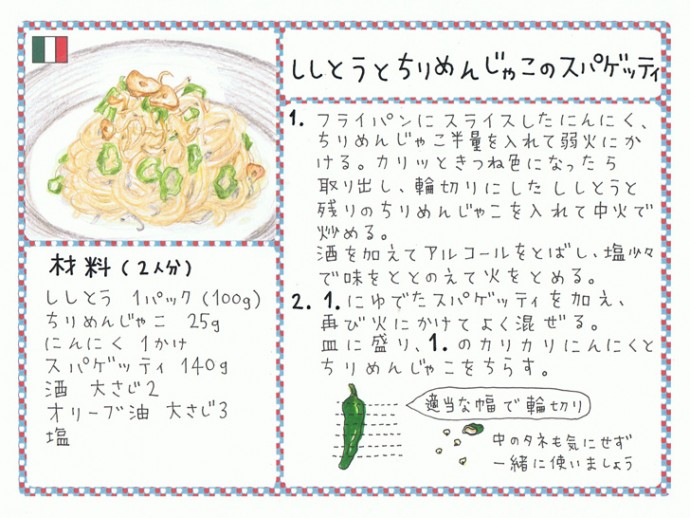 ししとうとちりめんじゃこのスパゲッティ
材料（2人分）
ししとう 1パック（100g）
ちりめんじゃこ 25g
にんにく 1かけ
スパゲッティ 140g
酒 大さじ2
オリーブ油 大さじ3
塩
1. フライパンにスライスしたにんにく、
ちりめんじゃこ半量を入れて弱火にか
ける。カリッときつね色になったら
取り出し、輪切りにしたししとうと
残りのちりめんじゃこを入れて中火で
炒める。
酒を加えてアルコールをとばし、塩少々
で味をととのえて火をとめる。
2. 1.にゆでたスパゲッティを加え、
再び火にかけてよく混ぜる。
皿に盛り、1.のカリカリにんにくと
ちりめんじゃこをちらす。
適当な幅で輪切り
中のタネも気にせず
一緒に使いましょう